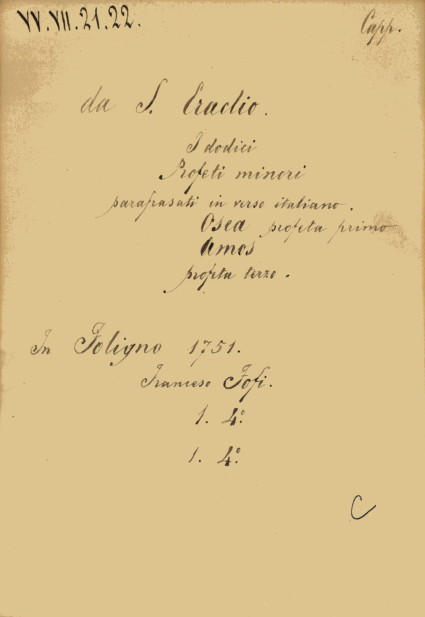 VV.VII.21.22.
Capp.
da S. Eraclio.
I dodici
Profeti minori
parafrasati in verso italiano.
Osea profeta primo
Amos
profeta terzo.
In Foligno 1751.
Francesco Fofi.
1. 4º.
1. 4º.
C